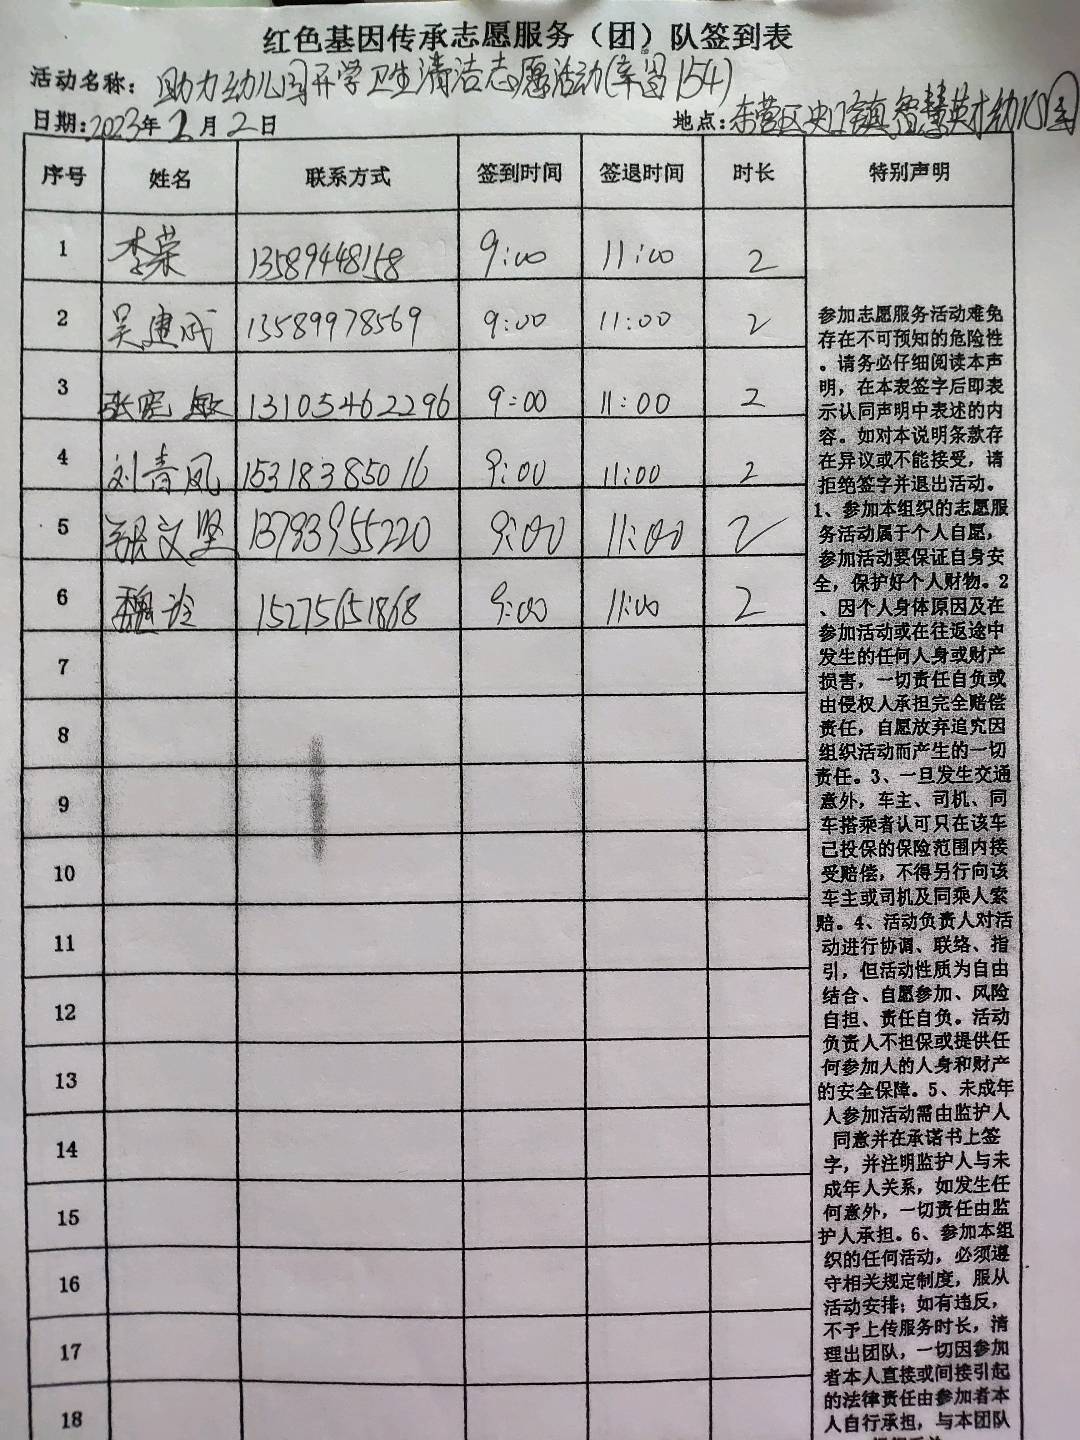 红色基因传承志愿服务（团）队签到表
活动名称：助力幼儿园开学卫生清洁志愿活动(辛留154)
日期:2023年2月2日 地点:东营区史口镇智慧英才幼儿园
序号 姓名 联系方式 签到时间 签退时间 时长 特别声明
1 李荣 13589448158 9:00 11:00 2
2 吴建成 13589978569 9:00 11:00 2
3 张宪敏 13105462296 9:00 11:00 2
4 刘青凤 15318385016 9:00 11:00 2
5 张文坚 13793955220 9:00 11:00 2
6 魏玲 15275651868 9:00 11:00 2
7
8
9
10
11
12
13
14
15
16
17
18
参加志愿服务活动难免
存在不可预知的危险性
。请务必仔细阅读本声
明，在本表签字后即表
示认同声明中表述的内
容。如对本说明条款存
在异议或不能接受，请
拒绝签字并退出活动。
1、参加本组织的志愿服
务活动属于个人自愿，
参加活动要保证自身安
全，保护好个人财物。2
、因个人身体原因及在
参加活动或在往返途中
发生的任何人身或财产
损害，一切责任自负或
由侵权人承担完全赔偿
责任，自愿放弃追究因
组织活动而产生的一切
责任。3、一旦发生交通
意外，车主、司机、同
车搭乘者认可只在该车
已投保的保险范围内接
受赔偿，不得另行向该
车主或司机及同乘人索
赔。4、活动负责人对活
动进行协调、联络、指
引，但活动性质为自由
结合、自愿参加、风险
自担、责任自负。活动
负责人不担保或提供任
何参加人的人身和财产
的安全保障。5、未成年
人参加活动需由监护人
同意并在承诺书上签
字，并注明监护人与未
成年人关系，如发生任
何意外，一切责任由监
护人承担。6、参加本组
织的任何活动，必须遵
守相关规定制度，服从
活动安排；如有违反，
不予上传服务时长，清
理出团队，一切因参加
者本人直接或间接引起
的法律责任由参加者本
人自行承担，与本团队